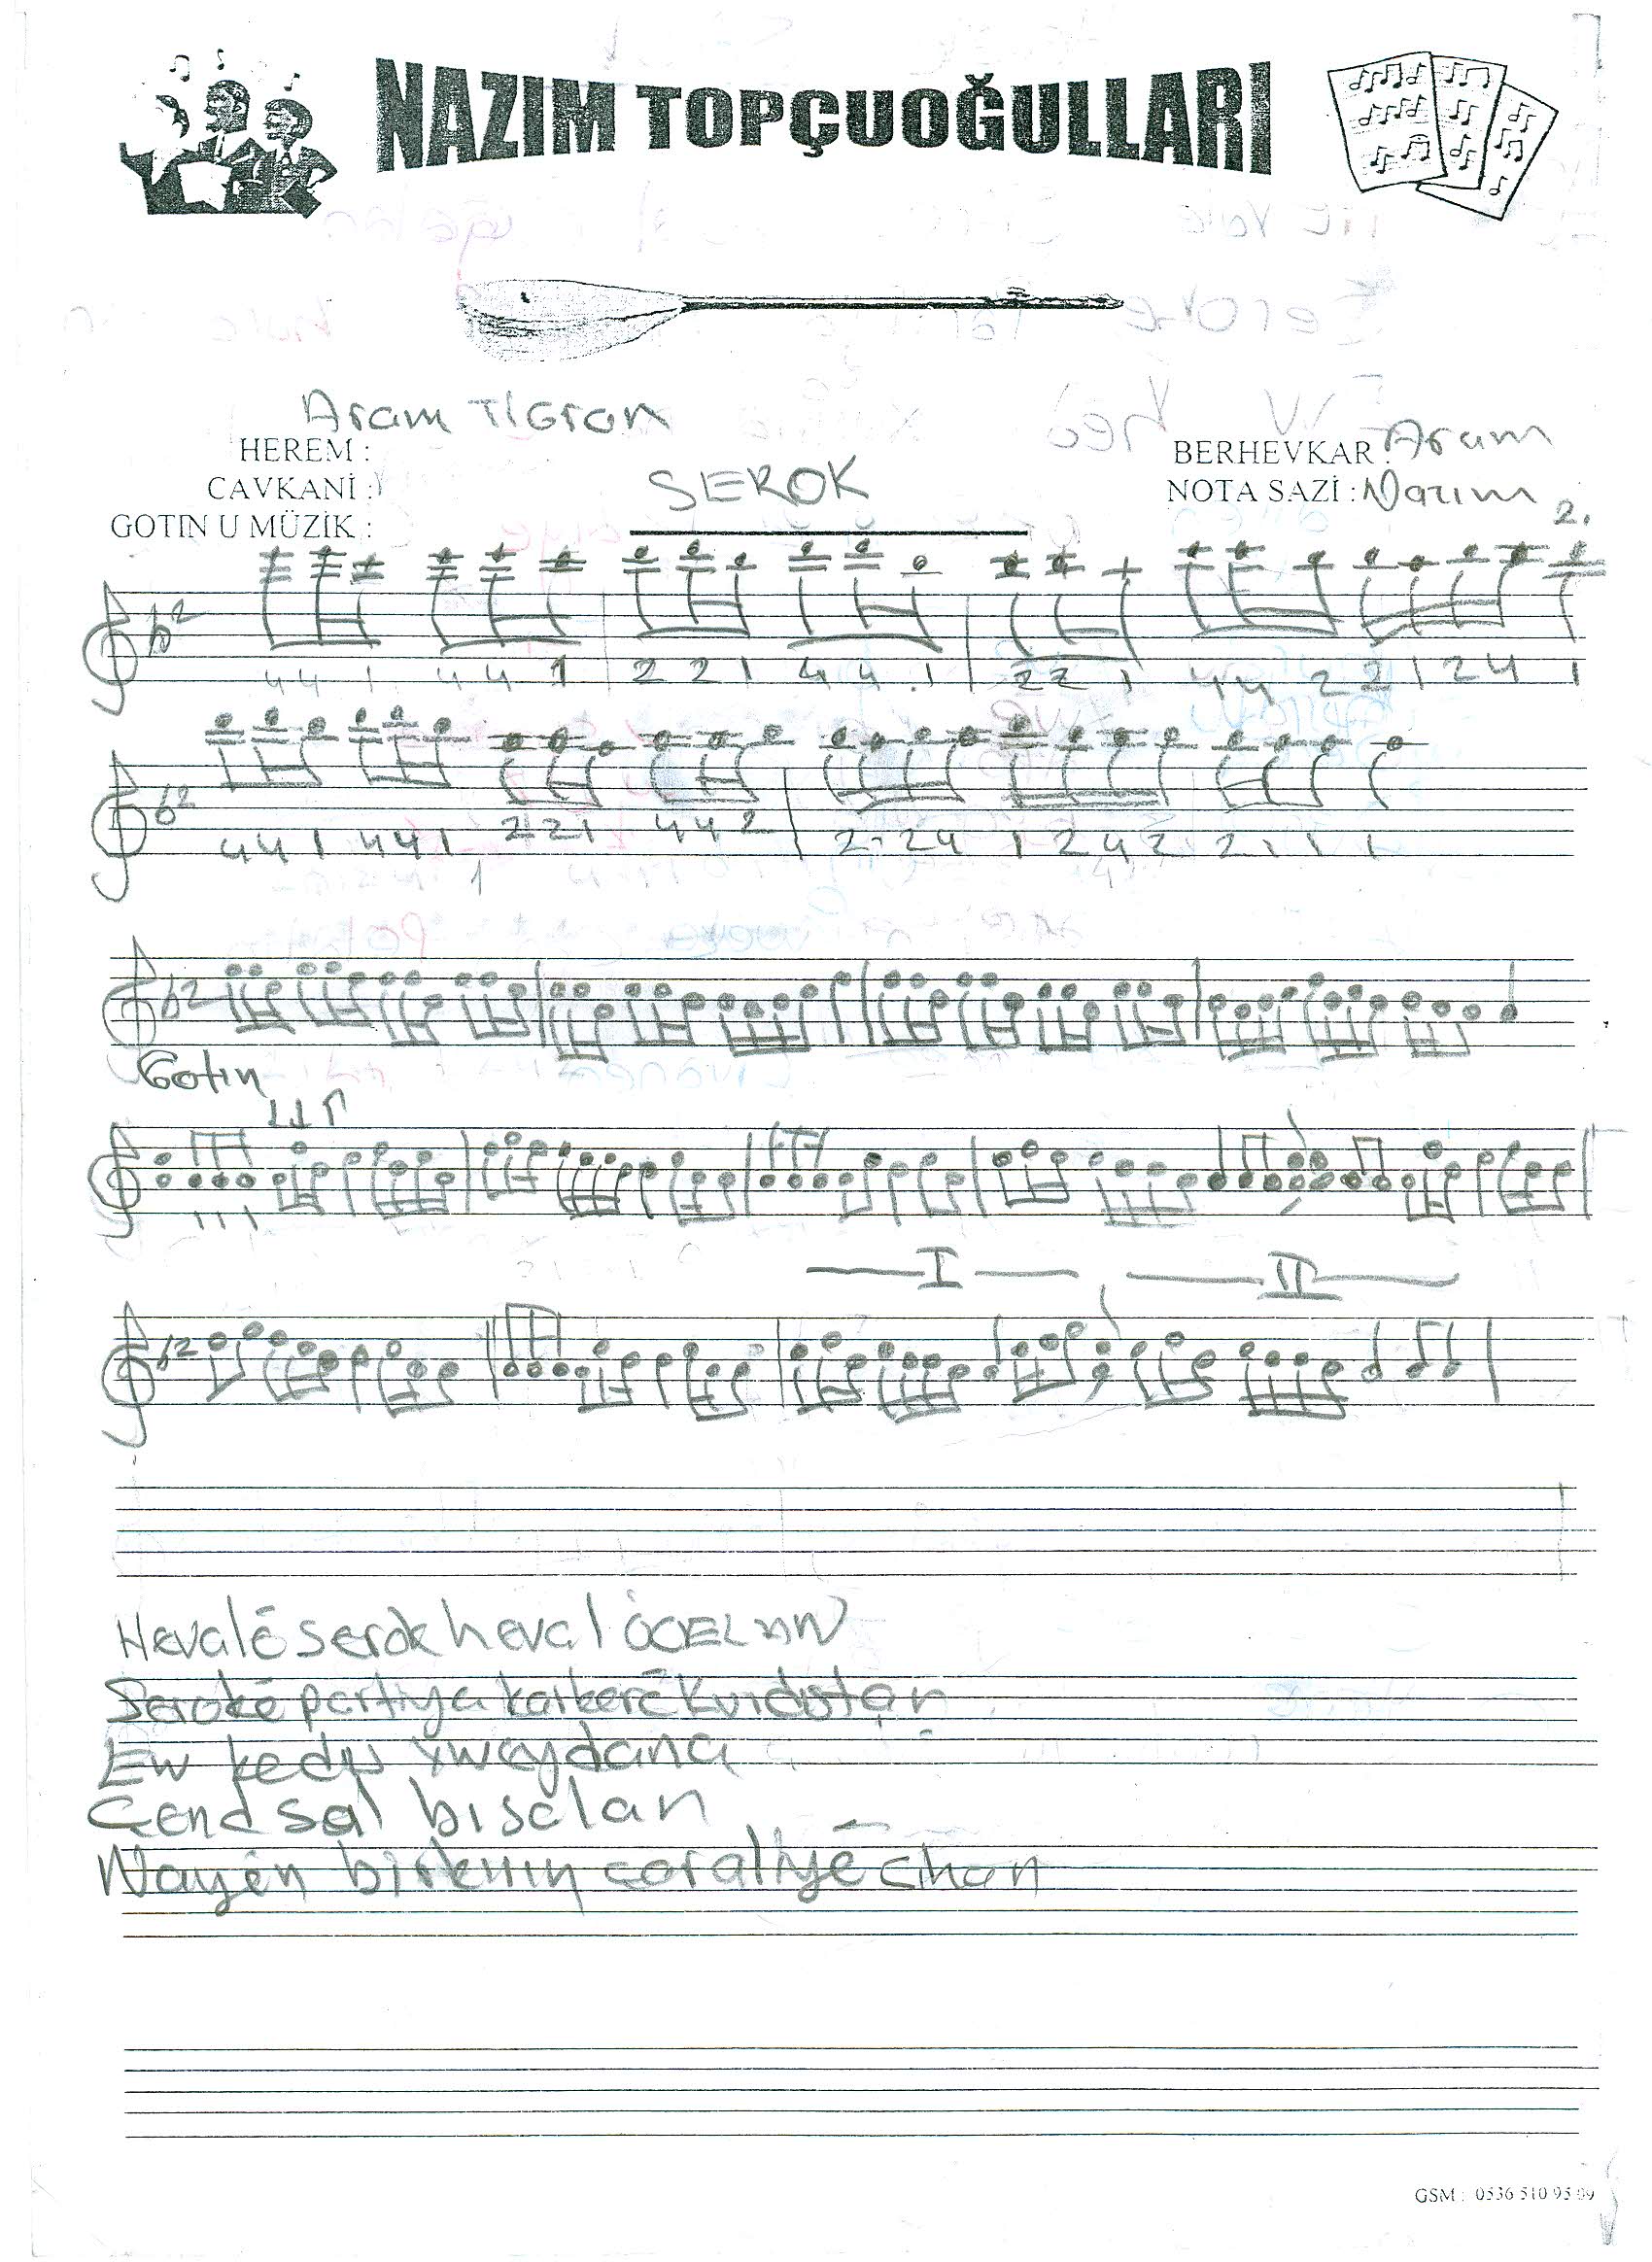 NAZIM TOPÇUOĞULLARI
Aram TIGran
HEREM :
CAVKANİ :
GOTIN U MÜZİK :
SEROK
BERHEVKAR : Aram
NOTA SAZİ : Nazım
2.
b2
44 1 44 1 2 2 1 44 1 22 1 44 2 2 1 2 4 1
b2
44 1 44 1 2 2 1 44 2 2 . 24 1 2 4 2 2 1 1 1
1
b2
Gotin
I II
b2
Hevalê serok heval ÖCELAN
Serokê partiya karkerê Kurdistan
Ew kedu xwaydana
Çend sal bı salan
Nayên birkırın çaraliyê cihan
GSM : 0536 510 95 09